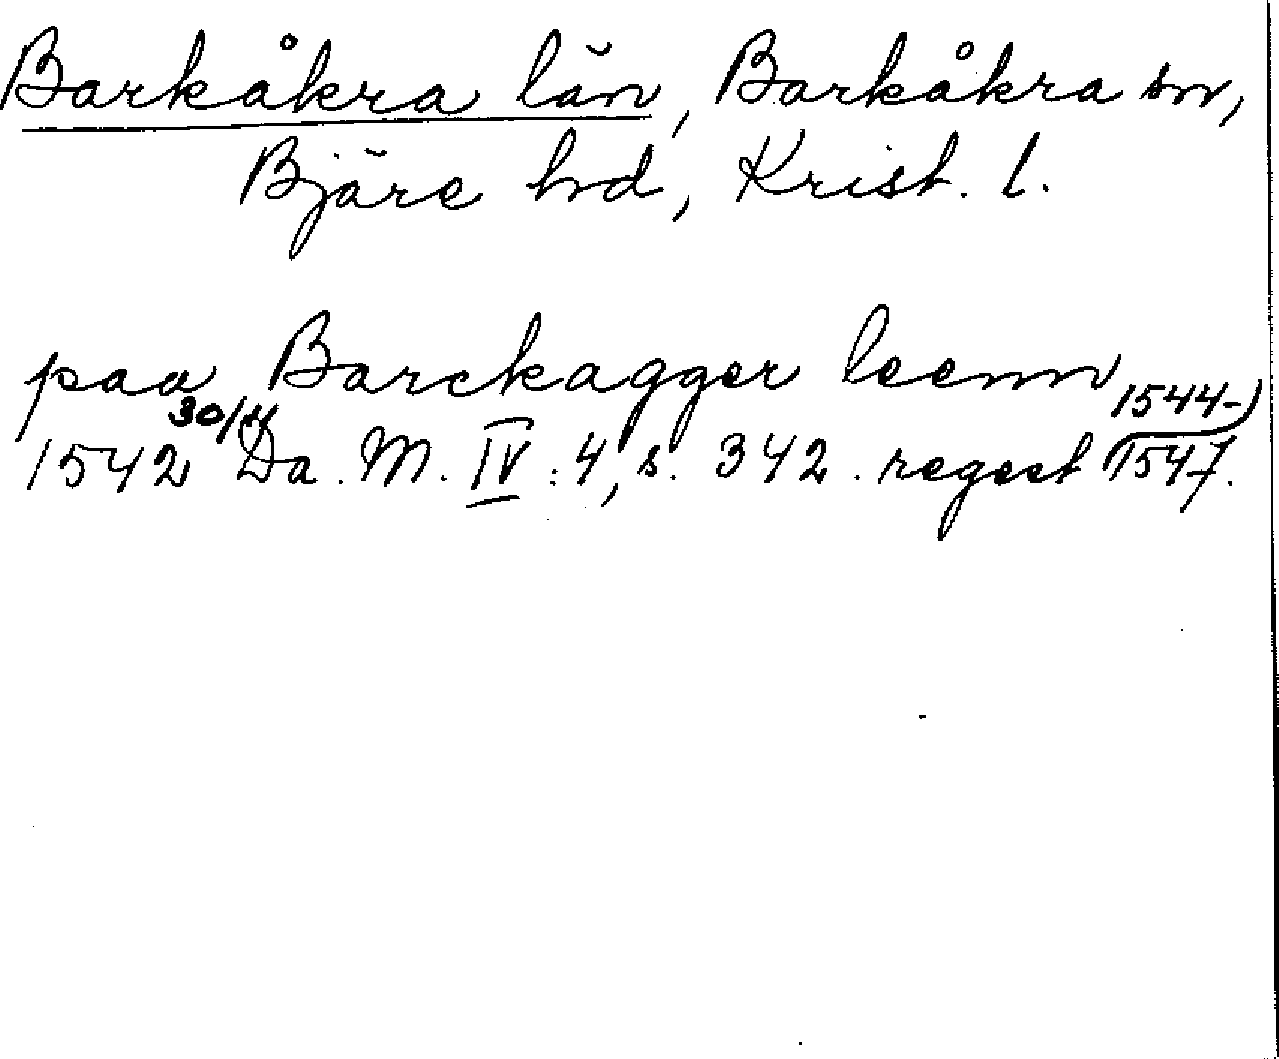 Barkåkra län, Barkåkra sn,
Bjäre hd, Krist. l.
paa Barckagger leenn
1542 30/11 Da. M. IV : 4, s. 342. regest 1544-1547.